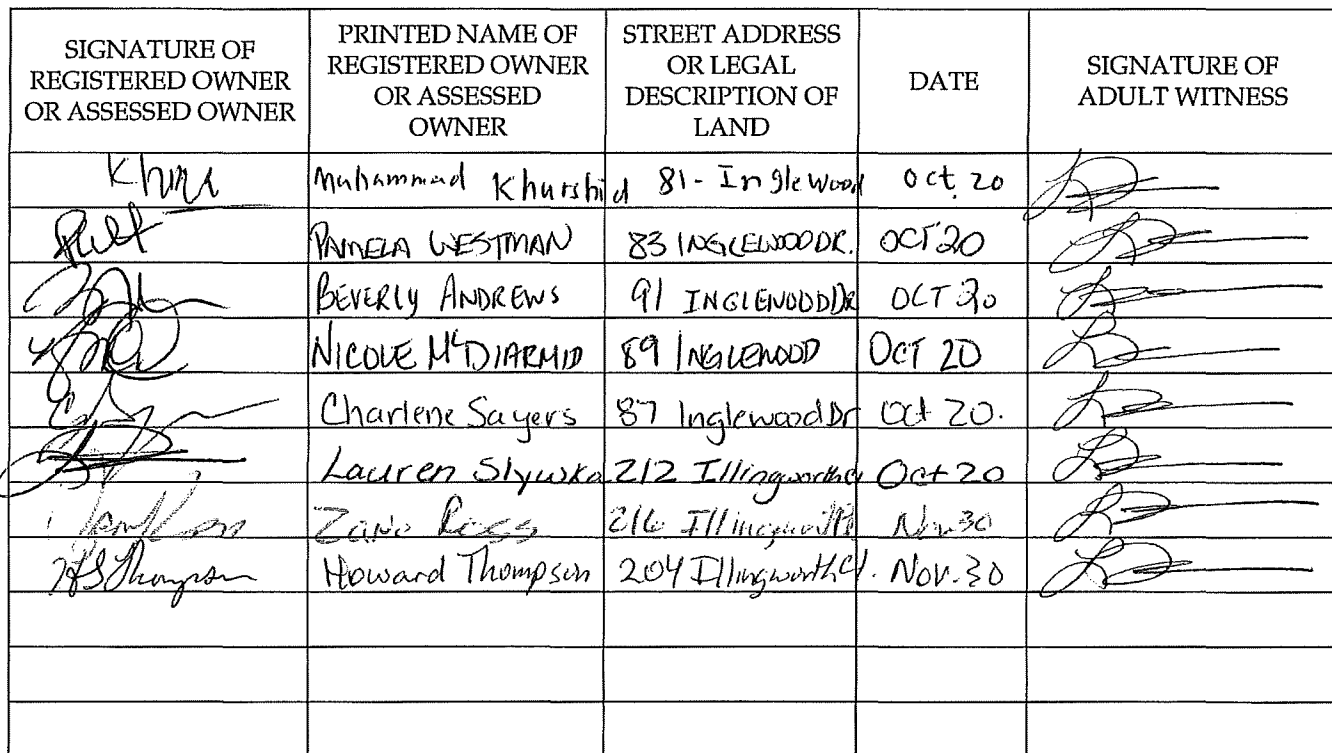 SIGNATURE OF
REGISTERED OWNER
OR ASSESSED OWNER
PRINTED NAME OF
REGISTERED OWNER
OR ASSESSED
OWNER
STREET ADDRESS
OR LEGAL
DESCRIPTION OF
LAND
DATE
SIGNATURE OF
ADULT WITNESS
Muhammad Khurshid 81 - Inglewood Oct 20
PAMELA WESTMAN 83 INGLEWOOD DR. OCT 20
BEVERLY ANDREWS 91 INGLEWOOD DR OCT 20
NICOLE McDIARMID 89 INGLEWOOD OCT 20
Charlene Sayers 87 Inglewood Dr Oct 20.
Lauren Slywka 212 Illingworth Oct 20
Ross 216 Nov 30
HS Thompson Howard Thompson 204 Illingworth Cl. Nov. 30